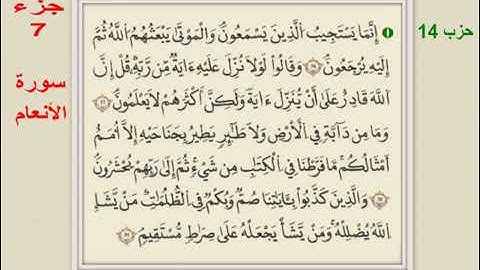 جزء
7
سورة
الأنعام
حزب 14
إِنَّمَا يَسْتَجِيبُ الَّذِينَ يَسْمَعُونَ وَالْمَوْتَى يَبْعَثُهُمُ اللَّهُ ثُمَّ
إِلَيْهِ يُرْجَعُونَ ٣٦ وَقَالُوا لَوْلَا نُزِّلَ عَلَيْهِ ءَايَةٌ مِّن رَّبِّهِ قُلْ إِنَّ
اللَّهَ قَادِرٌ عَلَى أَن يُنَزِّلَ ءَايَةً وَلَكِنَّ أَكْثَرَهُمْ لَا يَعْلَمُونَ ٣٧
وَمَا مِن دَابَّةٍ فِي الْأَرْضِ وَلَا طَائِرٍ يَطِيرُ بِجَنَاحَيْهِ إِلَّا أُمَمٌ
أَمْثَالُكُم مَّا فَرَّطْنَا فِي الْكِتَابِ مِن شَيْءٍ ثُمَّ إِلَى رَبِّهِمْ يُحْشَرُونَ
٣٨ وَالَّذِينَ كَذَّبُوا بِآيَاتِنَا صُمٌّ وَبُكْمٌ فِي الظُّلُمَاتِ مَن يَشَإِ
اللَّهُ يُضْلِلْهُ وَمَن يَشَأْ يَجْعَلْهُ عَلَى صِرَاطٍ مُّسْتَقِيمٍ ٣٩